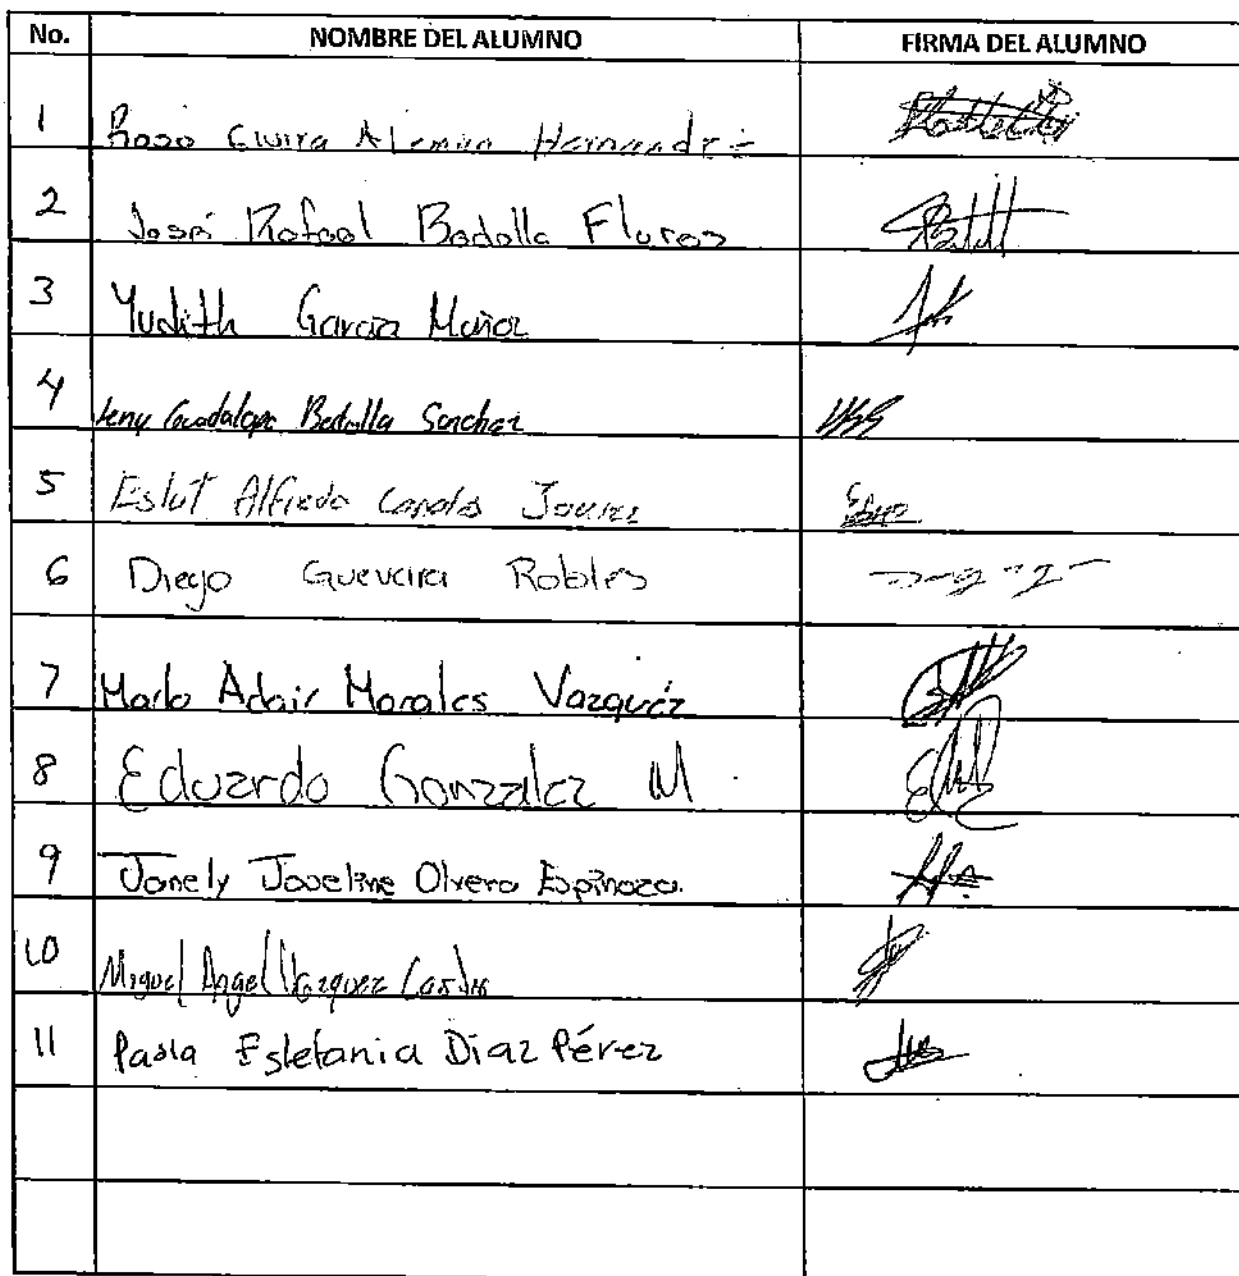 No. NOMBRE DEL ALUMNO FIRMA DEL ALUMNO
1 Rosa Elvira Aleman Hernandez
2 José Rafael Badalla Flores
3 Yudith Garcia Muñoz
4 Yeny Guadalupe Badalla Sanchez
5 Alfredo Canales Juarez
6 Diego Guevara Robles
7 Mario Adair Morales Vazquez
8 Eduardo Gonzalez M
9 Janely Joseline Olvera Espinoza.
10 Miguel Angel Vazquez Castro
11 Paola Estefania Diaz Pérez